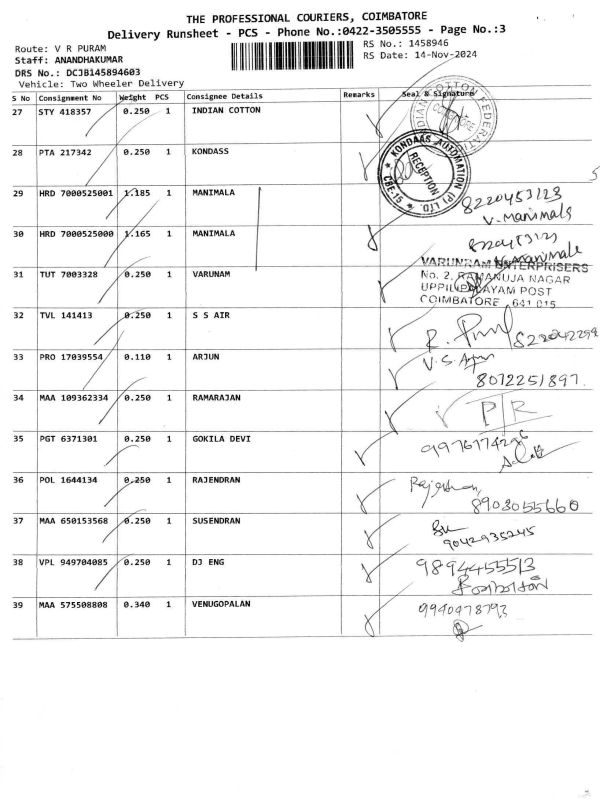 THE PROFESSIONAL COURIERS, COIMBATORE
Delivery Runsheet - PCS - Phone No.:0422-3505555 - Page No.:3
Route: V R PURAM
RS No.: 1458946
Staff: ANANDHAKUMAR
RS Date: 14-Nov-2024
DRS No.: DCJB145894603
Vehicle: Two Wheeler Delivery
S No Consignment No Weight PCS Consignee Details Remarks Seal & Signature
27 STY 418357 0.250 1 INDIAN COTTON
INDIAN COTTON FEDERATION
28 PTA 217342 0.250 1 KONDASS
KONDAAS AUTOMATION (P) LTD.
RECEPTION
CBE-15
29 HRD 7000525001 1.185 1 MANIMALA
8220453123
V. Manimala
30 HRD 7000525000 1.165 1 MANIMALA
V. Manimale
31 TUT 7003328 0.250 1 VARUNAM
VARUNRAM ENTERPRISERS
No. 2, RAMANUJA NAGAR
UPPILIPALAYAM POST
COIMBATORE 641 015
32 TVL 141413 0.250 1 S S AIR
33 PRO 17039554 0.110 1 ARJUN
V. S. Arjun
8072251897.
34 MAA 109362334 0.250 1 RAMARAJAN
P R
35 PGT 6371301 0.250 1 GOKILA DEVI
36 POL 1644134 0.250 1 RAJENDRAN
8903055660
37 MAA 650153568 0.250 1 SUSENDRAN
9042935245
38 VPL 949704085 0.250 1 DJ ENG
9894455513
39 MAA 575508808 0.340 1 VENUGOPALAN
9940478793